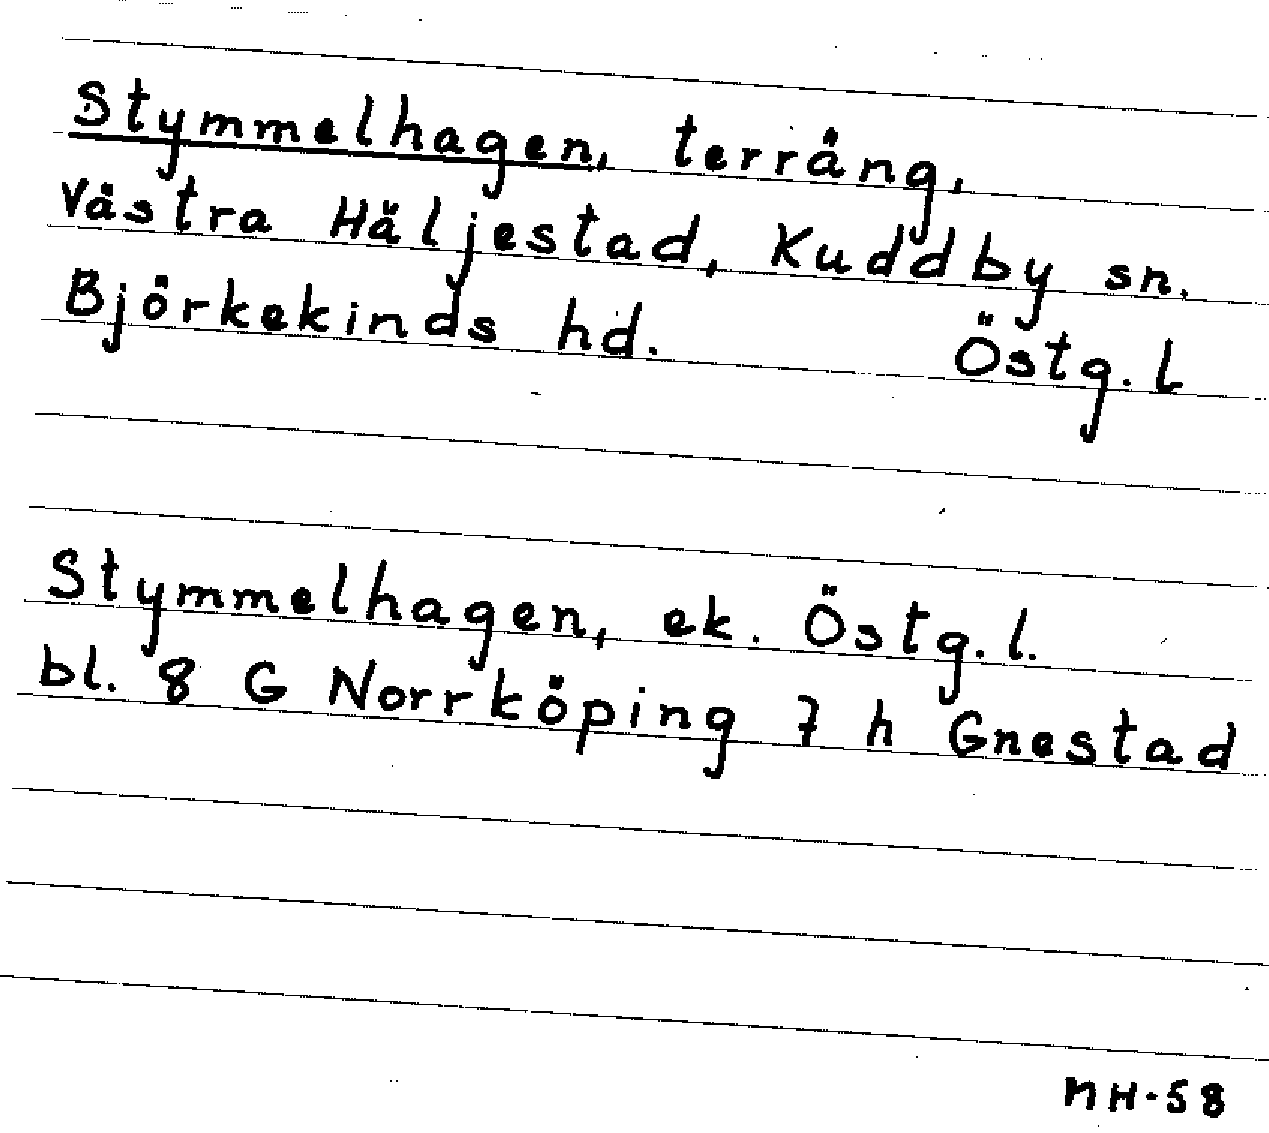 Stymmelhagen, terräng,
Västra Häljestad, Kuddby sn.
Björkekinds hd. Östg. l
Stymmelhagen, ek. Östg. l.
bl. 8 G Norrköping 7 h Gnestad
MH-58